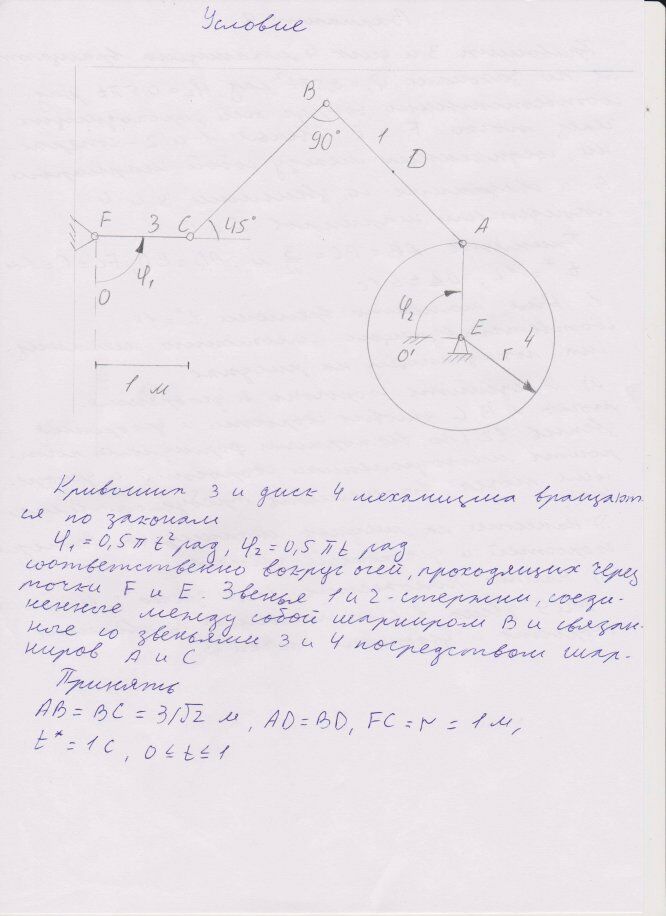 Условие
B
90°
1
D
F
3
C
45°
A
φ₁
O
φ₂
E
4
O'
r
1 м
Кривошип 3 и диск 4 механизма вращают-
ся по законам
φ₁ = 0,5 π t² рад, φ₂ = 0,5 π t рад
соответственно вокруг осей, проходящих через
точки F и E. Звенья 1 и 2 - стержни, соеди-
ненные между собой шарниром B и связан-
ные со звеньями 3 и 4 посредством шар-
ниров A и C
Принять
AB = BC = 3/√2 м, AD = BD, FC = r = 1 м,
t* = 1 c, 0 ≤ t ≤ 1